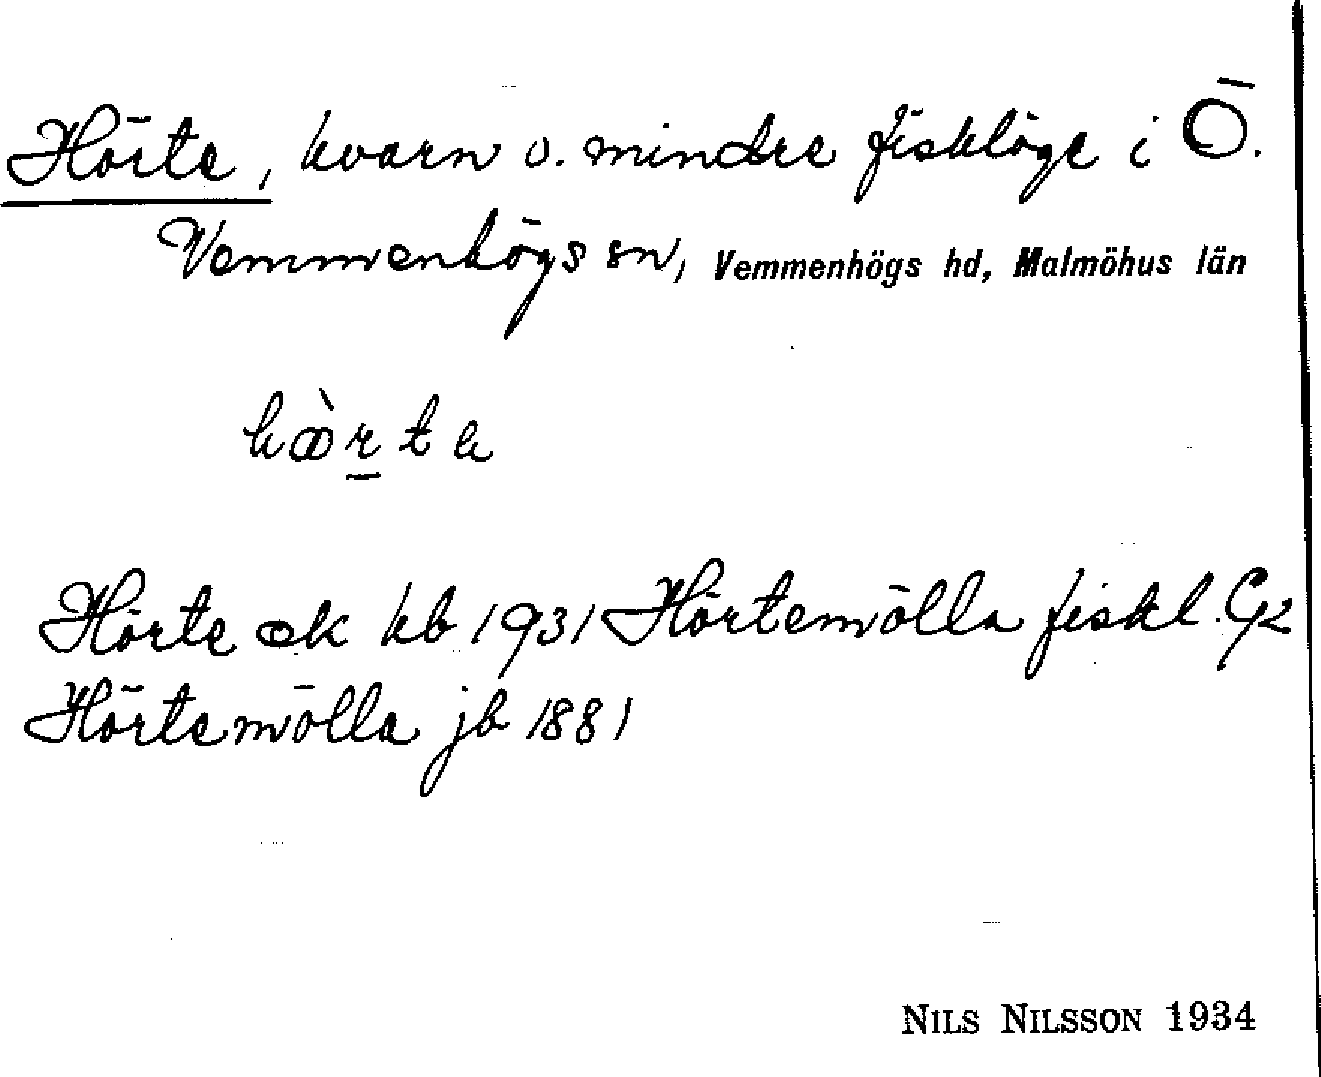 Hörte, kvarn o. mindre fiskläge i Ö.
Vemmenhögs sn, Vemmenhögs hd, Malmöhus län
hœ̀rta
Hörte ek kb 1931 Hörtemölla fiskl. Gk
Hörtemölla jb 1881
NILS NILSSON 1934